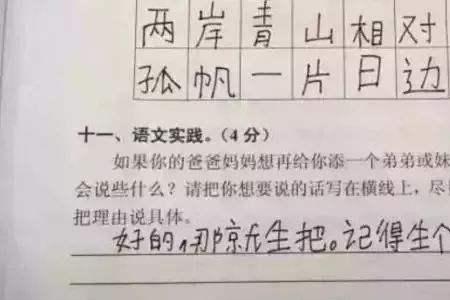 两岸青山相对
孤帆一片日边
十一、语文实践。（4分）
如果你的爸爸妈妈想再给你添一个弟弟或妹
会说些什么？请把你想要说的话写在横线上，尽
把理由说具体。
好的，那就生把。记得生个